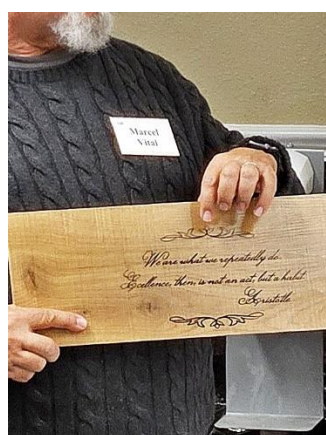 Marcel
Vital
We are what we repeatedly do.
Excellence, then, is not an act, but a habit.
Aristotle